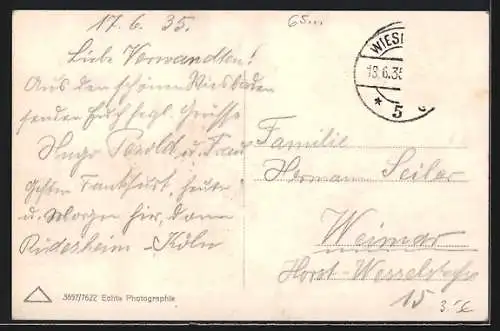 17. 6. 35.
65.-
Liebe Verwandten!
Aus dem schönen Wiesbaden
senden Euch herzl. Grüsse
Hugo u. Frau
Gestern Frankfurt, heute
u. Morgen hier, dann
Rüdesheim - Köln
WIESB
18.6.35
* 5
Familie
Hermann Seiler
Weimar
Horst-Wesselstraße
15
3.-€
3697/7622 Echte Photographie